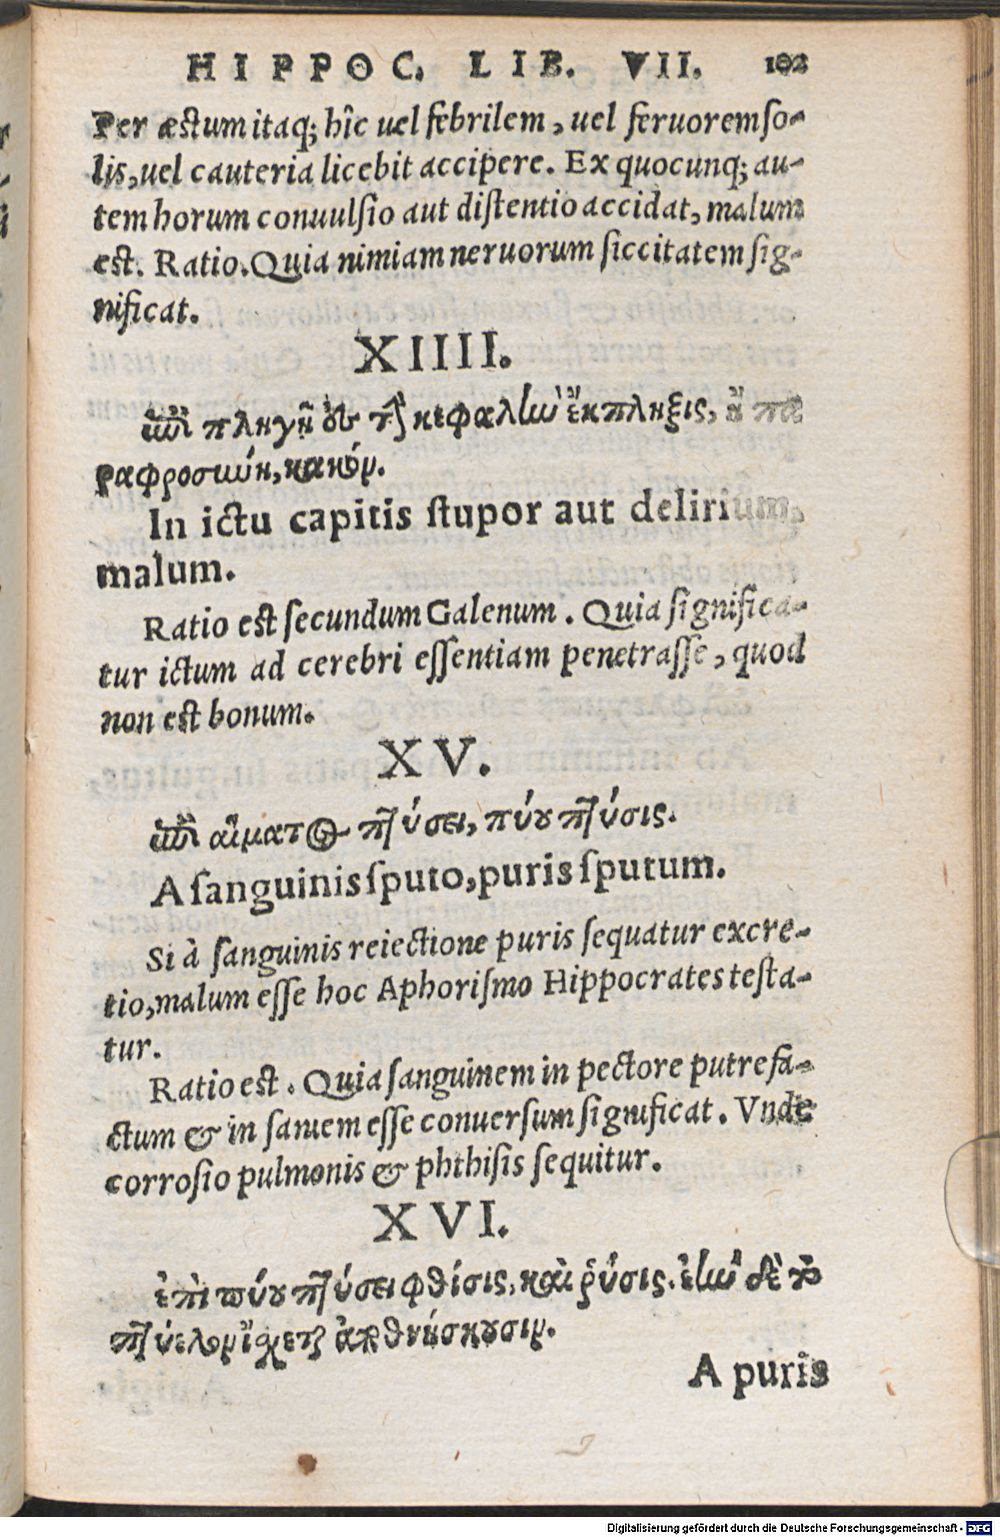 HIPPOC. LIB. VII. 102
Per æstum itaq; hîc uel febrilem, uel feruorem so-
lis, uel cauteria licebit accipere. Ex quocunq; au-
tem horum conuulsio aut distentio accidat, malum
est. Ratio. Quia nimiam neruorum siccitatem sig-
nificat.
XIIII.
ἐπὶ πληγῇ ἐς τὴν κεφαλὴν ἔκπληξις, ἢ πα
ραφροσύνη, κακόν.
In ictu capitis stupor aut delirium,
malum.
Ratio est secundum Galenum. Quia significa-
tur ictum ad cerebri essentiam penetrasse, quod
non est bonum.
XV.
ἐπὶ αἵματος πτύσει, πύου πτύσις.
A sanguinis sputo, puris sputum.
Si à sanguinis reiectione puris sequatur excre-
tio, malum esse hoc Aphorismo Hippocrates testa-
tur.
Ratio est. Quia sanguinem in pectore putrefa-
ctum & in saniem esse conuersum significat. Vnde
corrosio pulmonis & phthisis sequitur.
XVI.
ἐπὶ πύου πτύσει φθίσις, καὶ ῥύσις. ἐὴν δὲ τὸ
πτύελον ἴσχεται ἀποθνήσκουσιν.
A puris
Digitalisierung gefördert durch die Deutsche Forschungsgemeinschaft - DFG